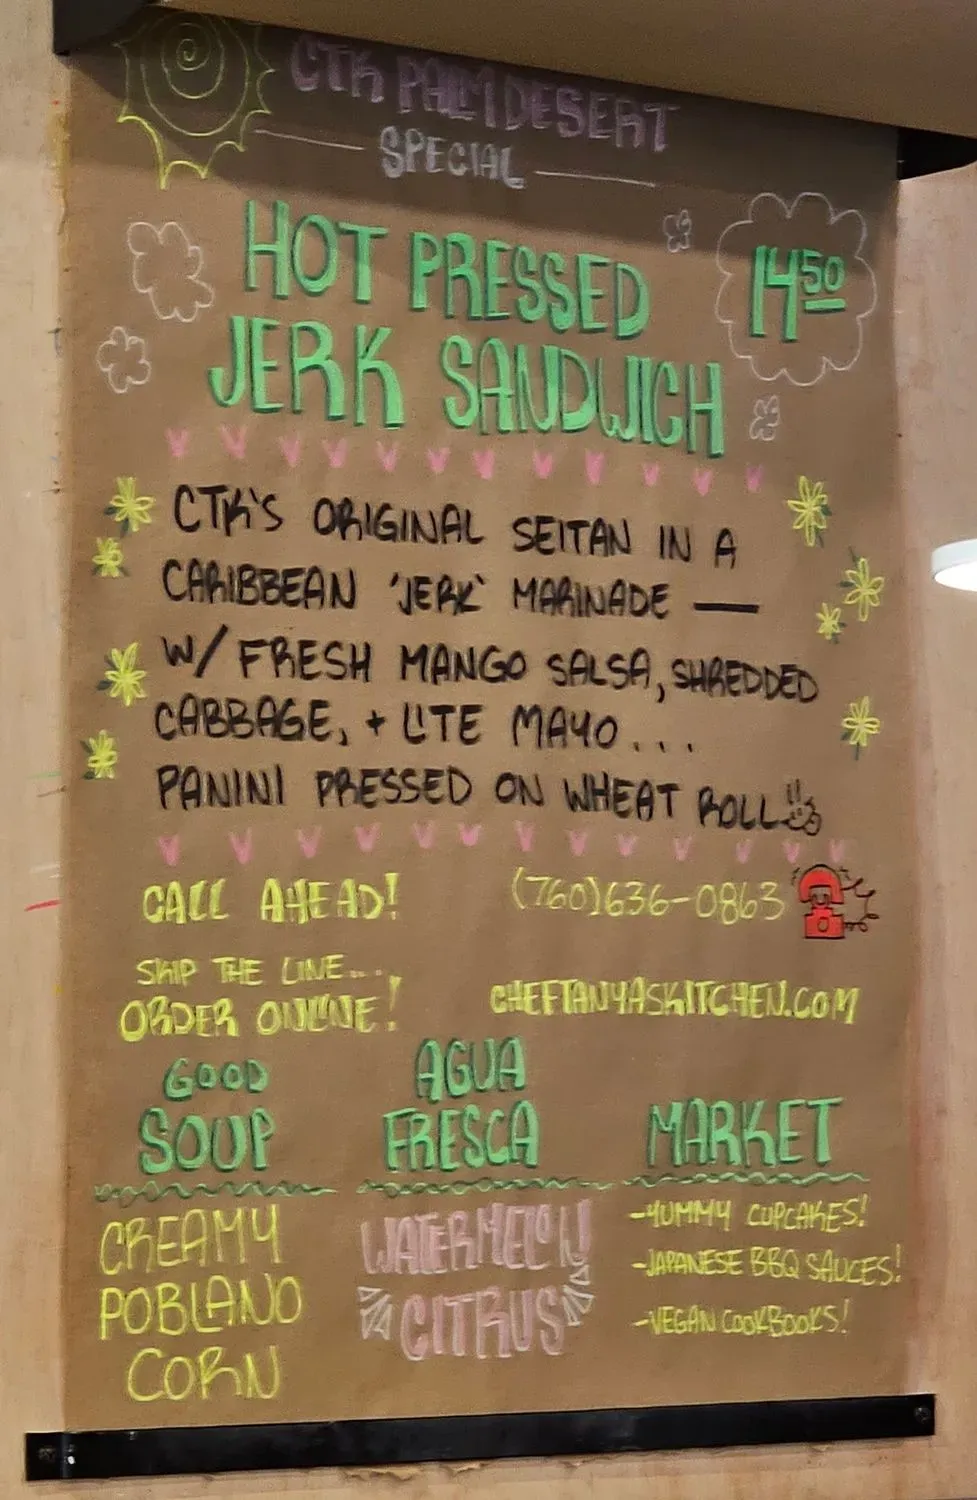 CTK PALM DESERT
SPECIAL
HOT PRESSED
JERK SANDWICH
14 50
CTK'S ORIGINAL SEITAN IN A
CARIBBEAN 'JERK' MARINADE —
W/ FRESH MANGO SALSA, SHREDDED
CABBAGE, + LITE MAYO...
PANINI PRESSED ON WHEAT ROLL
CALL AHEAD! (760)636-0863
SKIP THE LINE...
ORDER ONLINE! CHEFTANYASKITCHEN.COM
GOOD
SOUP
CREAMY
POBLANO
CORN
AGUA
FRESCA
WATERMELON
CITRUS
MARKET
-YUMMY CUPCAKES!
-JAPANESE BBQ SAUCES!
-VEGAN COOKBOOKS!